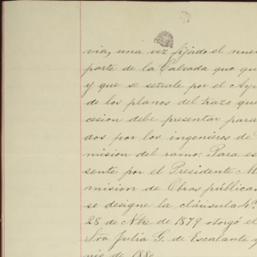 via, una vez fijado el nuev
parte de la Calzada que qu
y que se señale por el Ayu
de los planos del trazo que
cesion debe presentar para
dos por los ingenieros de
mision del ramo. Para es
sente por el Presidente M
mision de Obras públicas
se designe la cláusula 4ª
28 de Nbre de 1879 otorgó el
Sra Julia G. de Escalante y
nio de 188